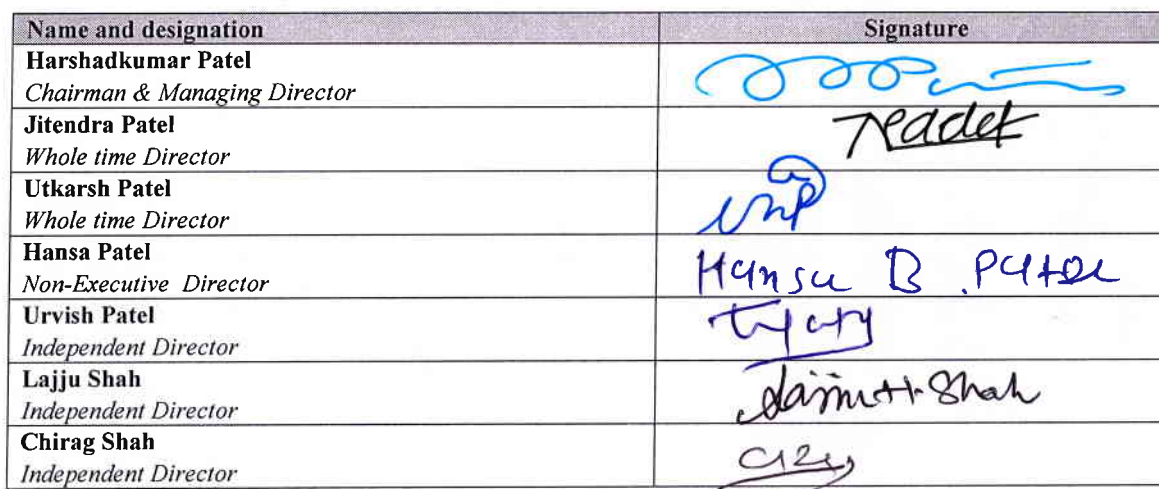 Name and designation Signature
Harshadkumar Patel
Chairman & Managing Director
Jitendra Patel
Whole time Director
Utkarsh Patel
Whole time Director
Hansa Patel
Non-Executive Director
Hansa B. Patel
Urvish Patel
Independent Director
Lajju Shah
Independent Director
Lajju H. Shah
Chirag Shah
Independent Director